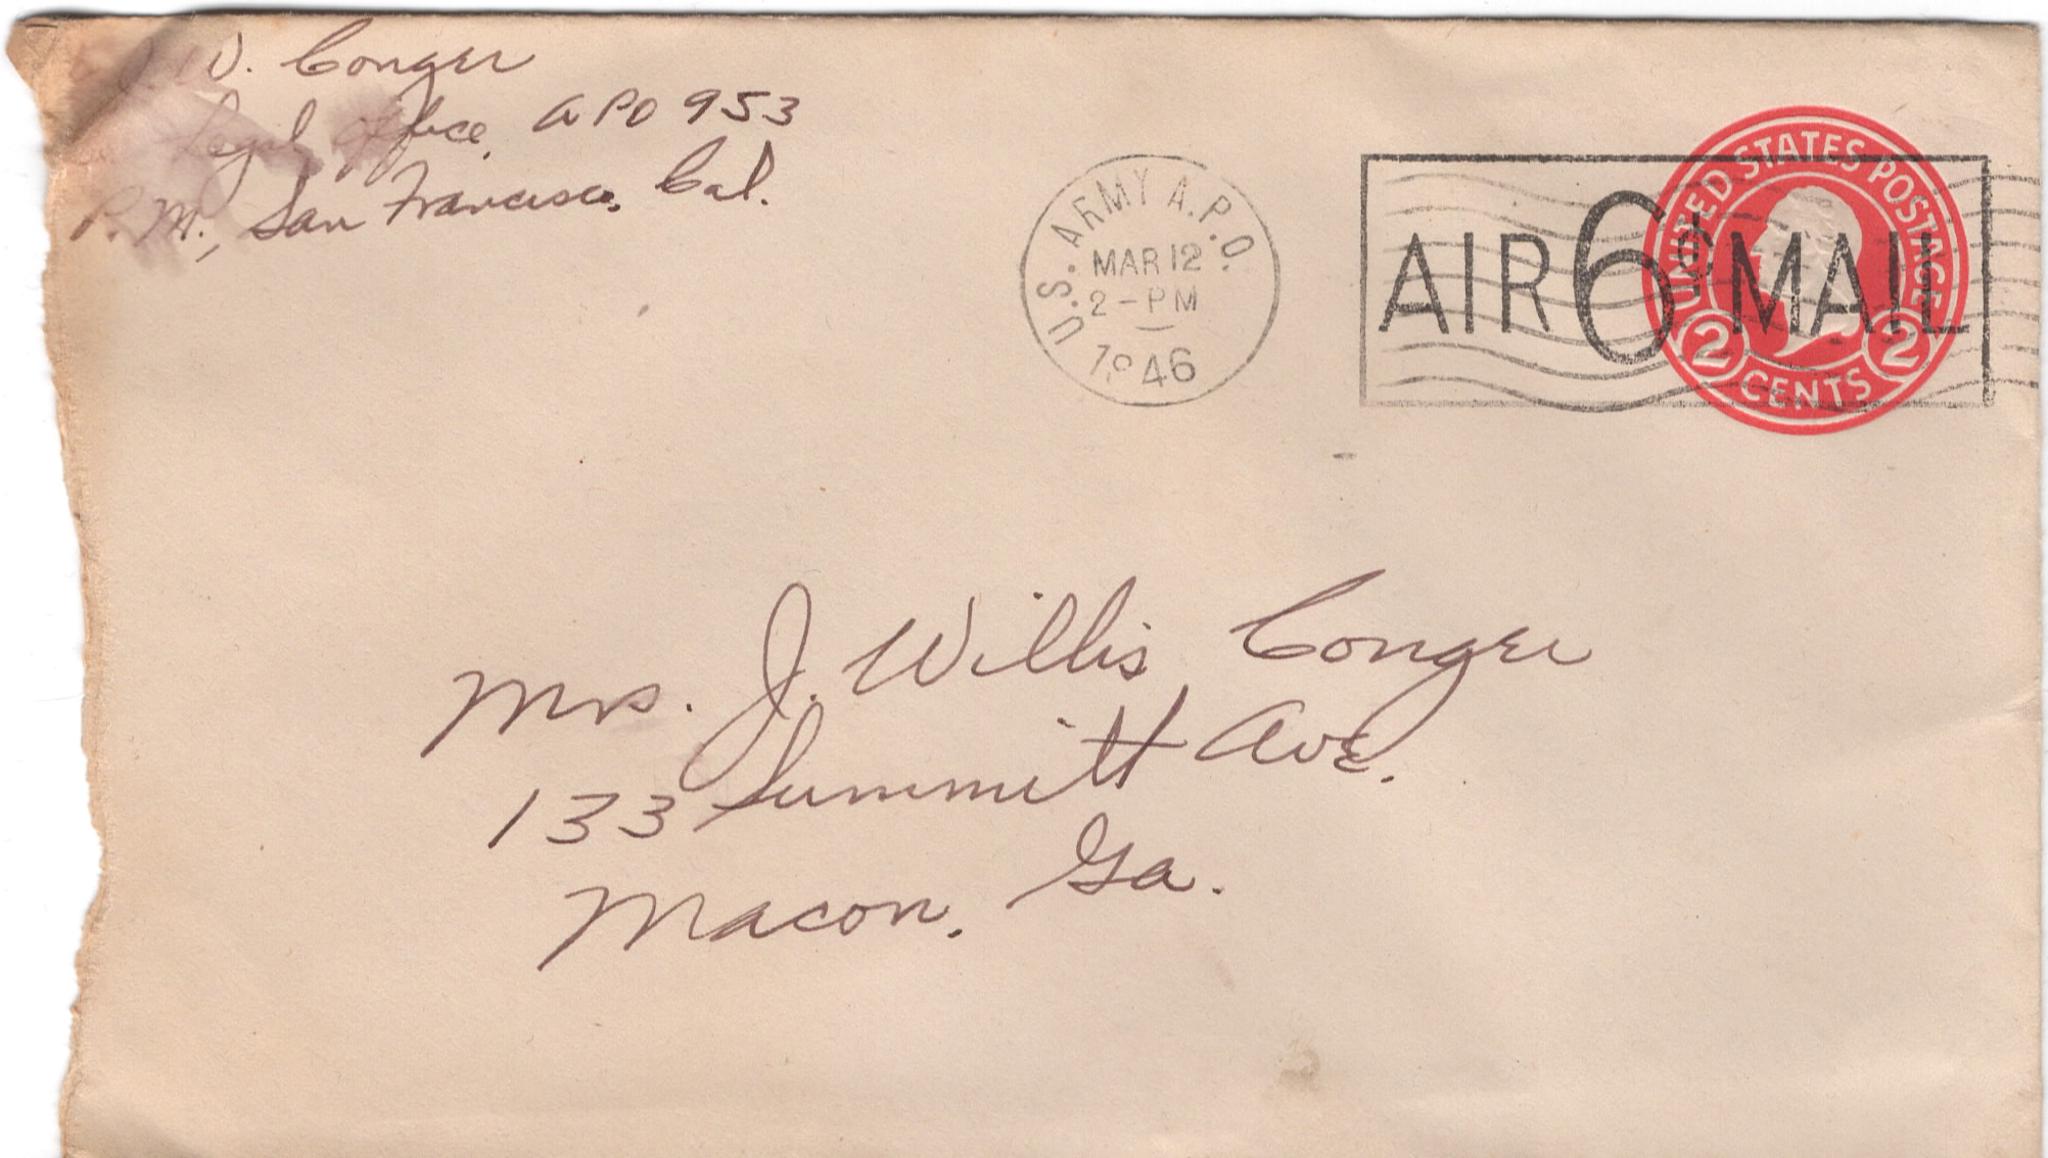 J. W. Conger
Legal Office, APO 953
P.M., San Francisco, Cal.
U.S. ARMY A.P.O.
MAR 12
2 - PM
1946
AIR 6¢ MAIL
UNITED STATES POSTAGE
2 CENTS 2
Mrs. J. Willis Conger
133 Summitt Ave.
Macon, Ga.